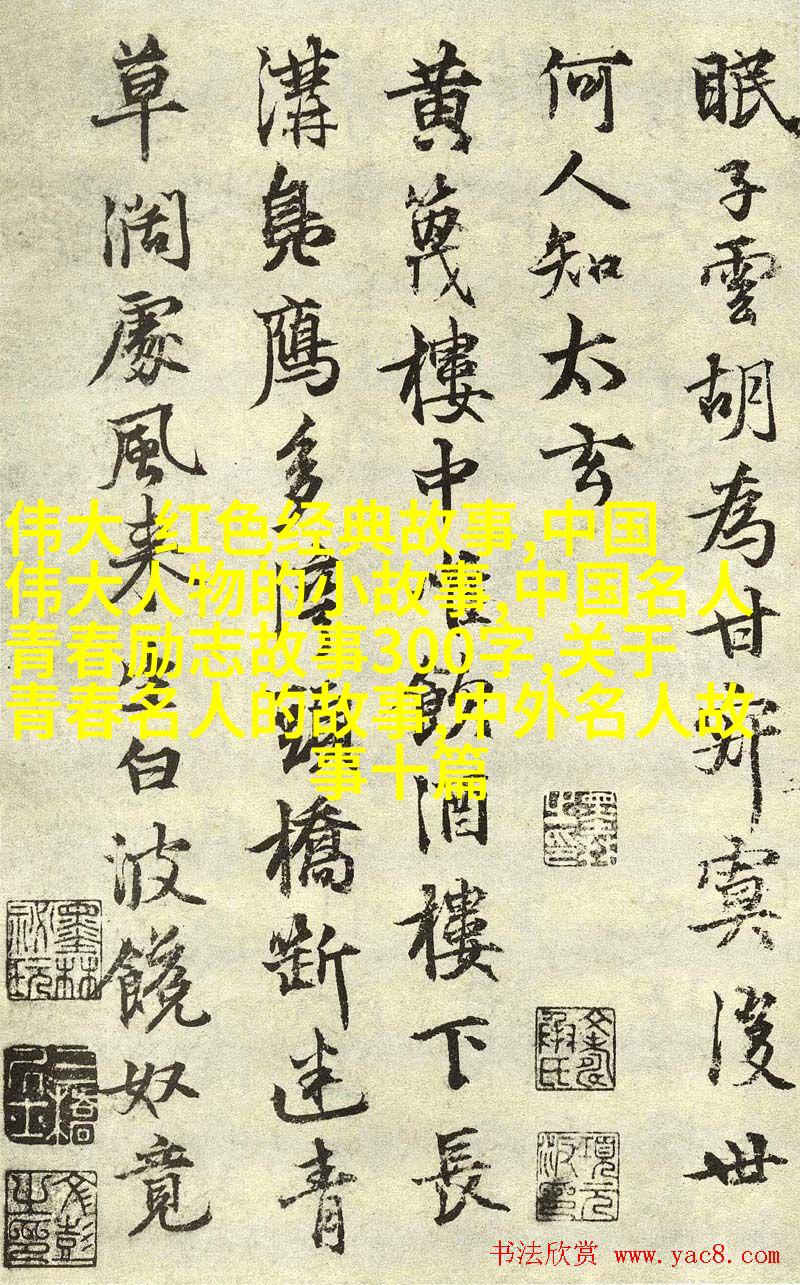 眠子雲胡為甘寞後世
何人知太玄
黄篾樓中飲酒樓下長
溝鳧鴈多頭橋斷迷青
草濶處風来生白波饒奴竟
伟大 红色经典故事,中国
伟大人物的小故事,中国名人
青春励志故事300字,关于
青春名人的故事,中外名人故
事十篇
墨林秘玩
书法欣赏 www.yac8.com